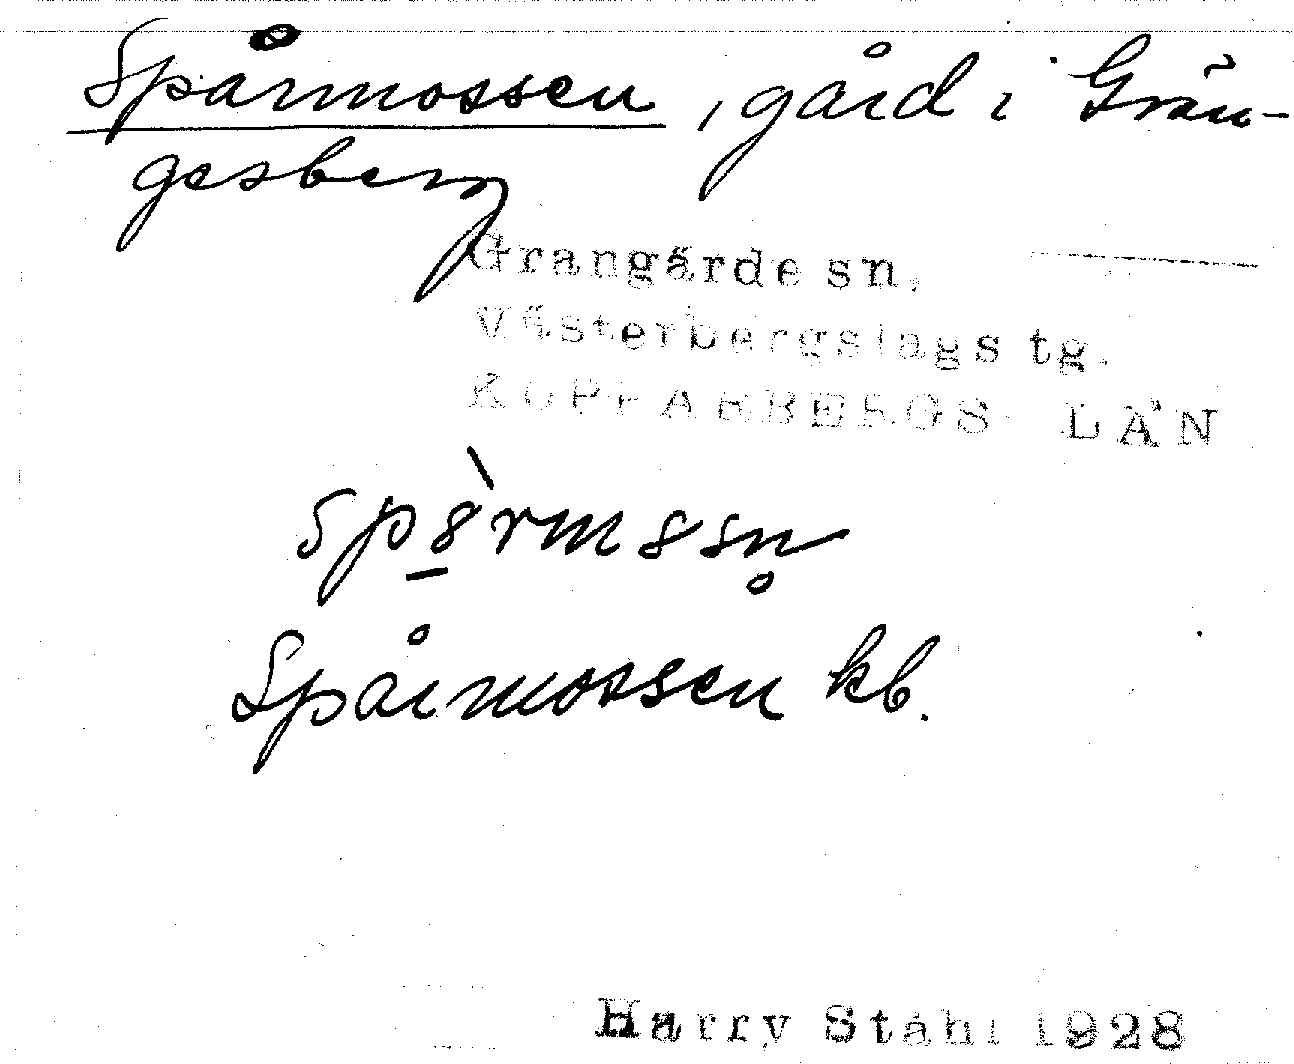 Spårmossen, gård i Grän-
gesberg
Grangärde sn,
Västerbergslags tg.
KOPPARBERGS LÄN
Spårmossen kb.
Harry Ståhl 1928